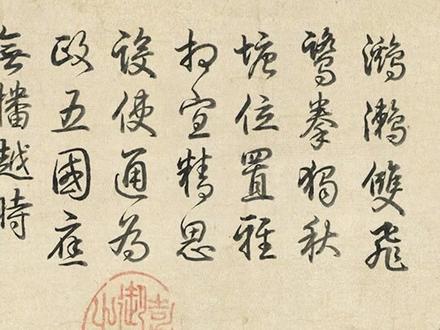 鸂鶒雙飛
鷺拳獨秋
塘位置雅
相宣精思
設使通為
政五國應
無播越時